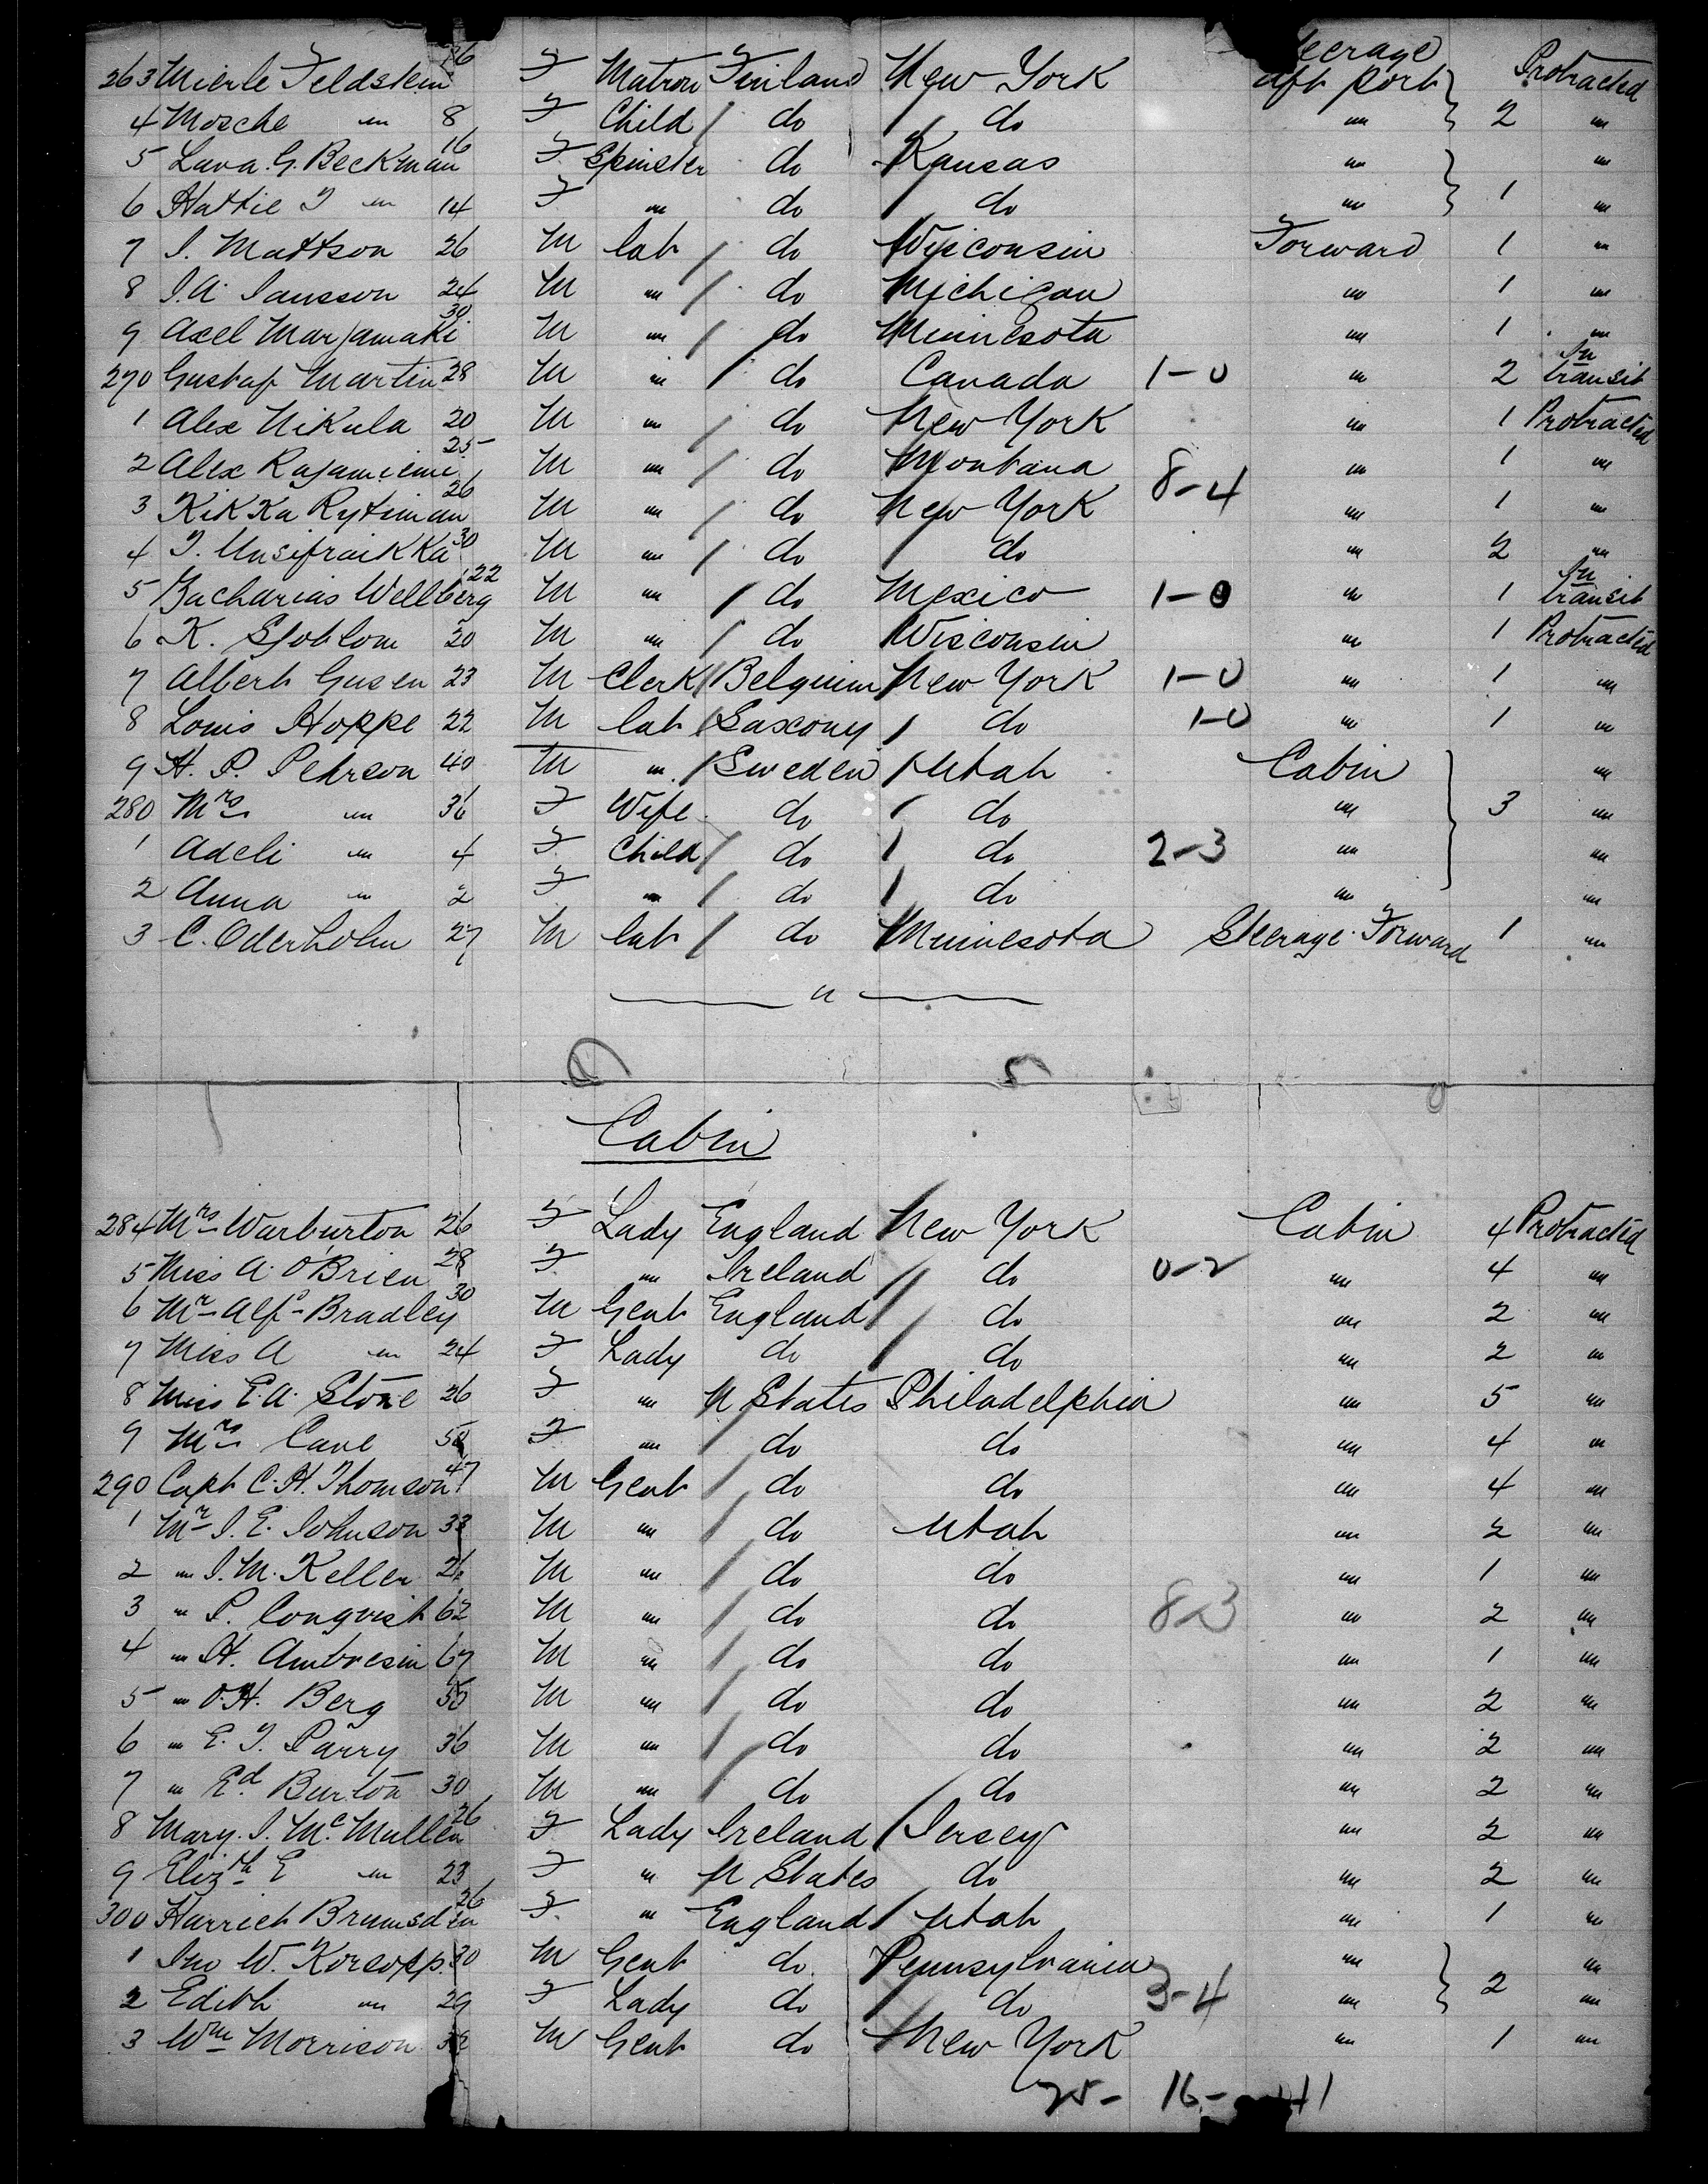 263 Mierle Feldstein 26 F Matron Finland New York Steerage aft port Protracted
4 Mosche " 8 F Child do do " 2 "
5 Lava. G. Beckman 16 F Spinster do Kansas " "
6 Hattie J " 14 F " do do " 1 "
7 I. Mattson 26 M lab do Wisconsin Forward 1 "
8 I. A. Jansson 24 M " do Michigan " 1 "
9 Axel Marjamaki 30 M " do Minnesota " 1 "
270 Gustaf Martin 28 M " do Canada 1-0 " 2 In transit
1 Alex Nikula 20 M " do New York " 1 Protracted
2 Alex Rajamiemi 25 M " do Montana " 1 "
8-4
3 Kikka Rytiman 26 M " do New York " 1 "
4 J. Unsifraikka 30 M " do do " 2 "
5 Zacharias Wellberg 22 M " do Mexico 1-0 " 1 In transit
6 K. Sjoblom 20 M " do Wisconsin " 1 Protracted
7 Albert Gusen 23 M Clerk Belguim New York 1-0 " 1 "
8 Louis Hoppe 22 M lab Saxony do 1-0 " 1 "
9 H. P. Pehrson 40 M " Sweden Utah Cabin "
280 Mrs " 36 F Wife do do " 3 "
1 Adeli " 4 F Child do do 2-3 " "
2 Anna " 2 F " do do " "
3 C. Oderholm 27 M lab do Minnesota Steerage Forward 1 "
"
Cabin
284 Mrs Warburton 26 F Lady England New York Cabin 4 Protracted
5 Miss A. O'Brien 28 F " Ireland do 0-2 " 4 "
6 Mr Alfd Bradley 30 M Gent England do " 2 "
7 Miss A " 24 F Lady do do " 2 "
8 Miss E. A. Stone 26 F " U States Philadelphia " 5 "
9 Mrs Cave F " do do " 4 "
290 Capt C. H. Thomson 47 M Gent do do " 4 "
1 Mr I. E. Johnson 33 M " do Utah " 2 "
2 " I. M. Keller M " do do " 1 "
3 " P. Conqvist 62 M " do do 8-3 " 2 "
4 " H. Ambresin 67 M " do do " 1 "
5 " O. H. Berg 55 M " do do " 2 "
6 " E. J. Parry 36 M " do do " 2 "
7 " Ed Burton 30 M " do do " 2 "
8 Mary. I. McMullen 26 F Lady Ireland Jersey " 2 "
9 Elizth E " 23 F " U States do " 2 "
300 Harriet Brumsden 26 F " England Utah " 1 "
1 Jno W. Korsopp 30 M Gent do Pennsylvania " "
2 Edith " 29 F Lady do do 3-4 " 2 "
3 Wm Morrison M Gent do New York " 1 "
25- 16-